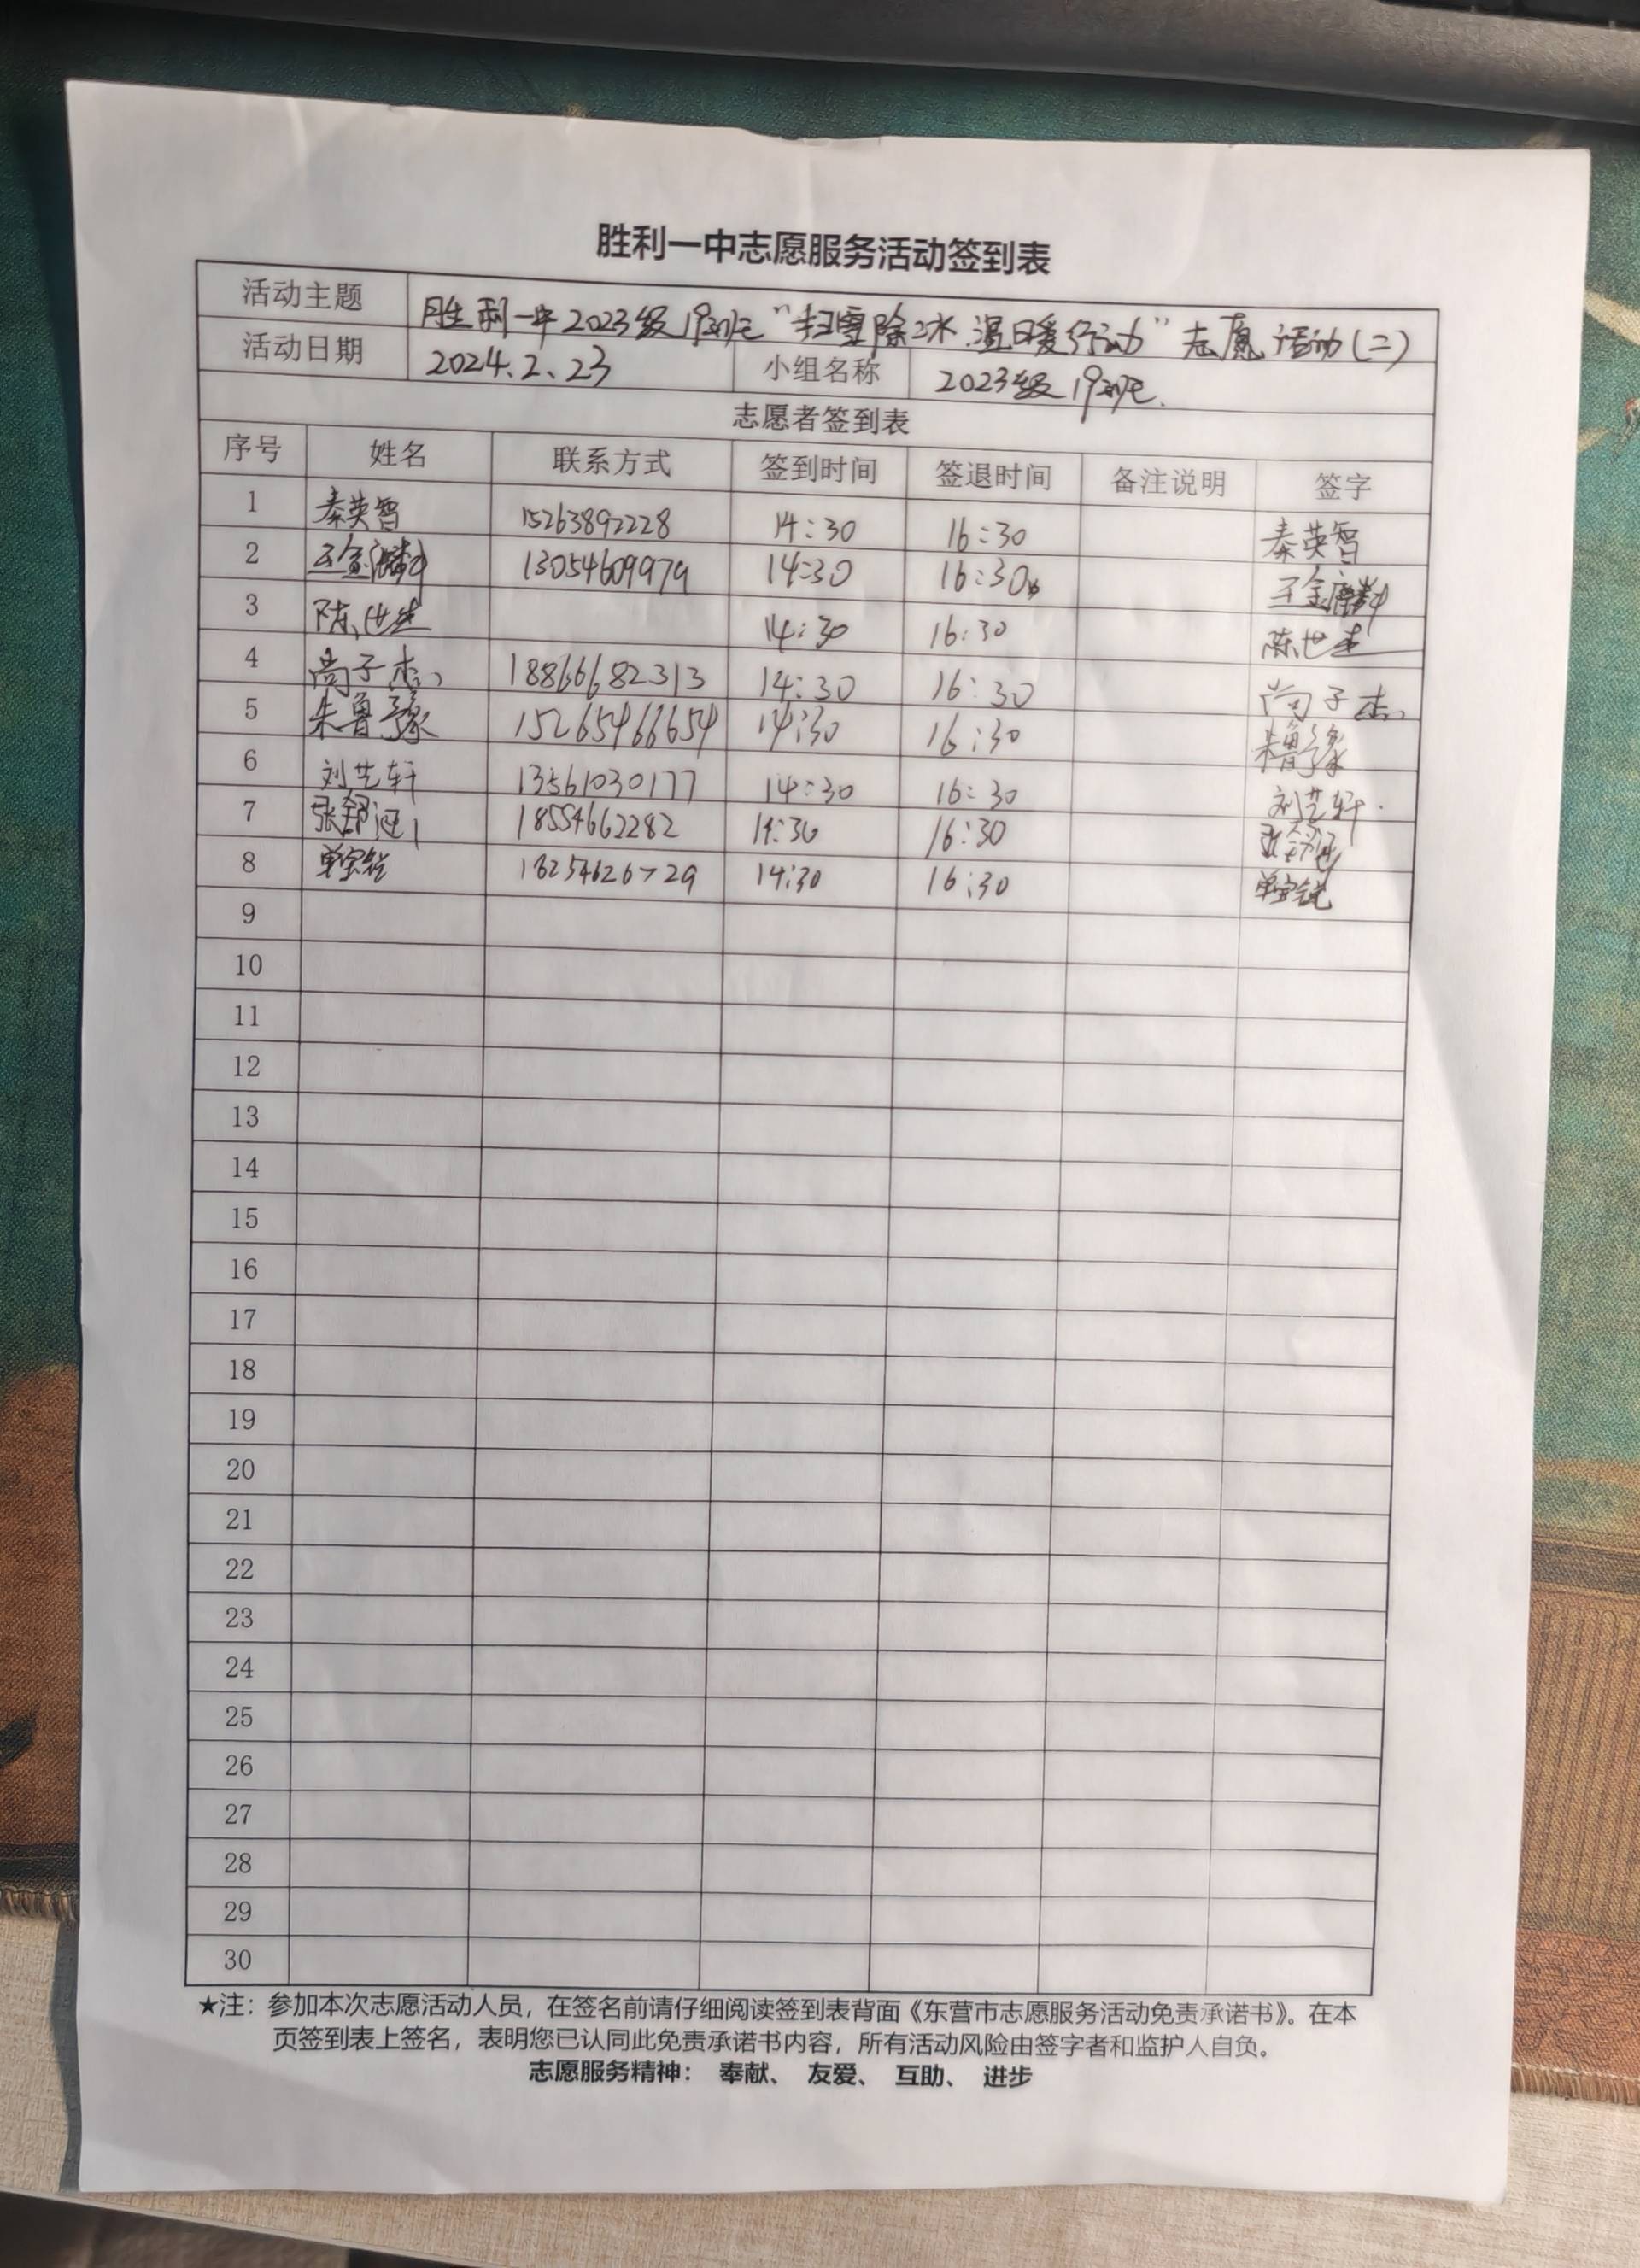 胜利一中志愿服务活动签到表
活动主题 胜利一中2023级19班"扫雪除冰.温暖行动"志愿活动(二)
活动日期 2024.2.23 小组名称 2023级19班.
志愿者签到表
序号 姓名 联系方式 签到时间 签退时间 备注说明 签字
1 秦英智 15263892228 14:30 16:30 秦英智
2 王金麟 13054609979 14:30 16:30 王金麟
3 陈世杰 14:30 16:30 陈世杰
4 尚子杰 18866682313 14:30 16:30 尚子杰
5 朱鲁豫 15265466654 14:30 16:30 朱鲁豫
6 刘艺轩 13561030177 14:30 16:30 刘艺轩
7 18554662282 14:30 16:30
8 14:30 16:30
9
10
11
12
13
14
15
16
17
18
19
20
21
22
23
24
25
26
27
28
29
30
★注：参加本次志愿活动人员，在签名前请仔细阅读签到表背面《东营市志愿服务活动免责承诺书》。在本
页签到表上签名，表明您已认同此免责承诺书内容，所有活动风险由签字者和监护人自负。
志愿服务精神： 奉献、 友爱、 互助、 进步